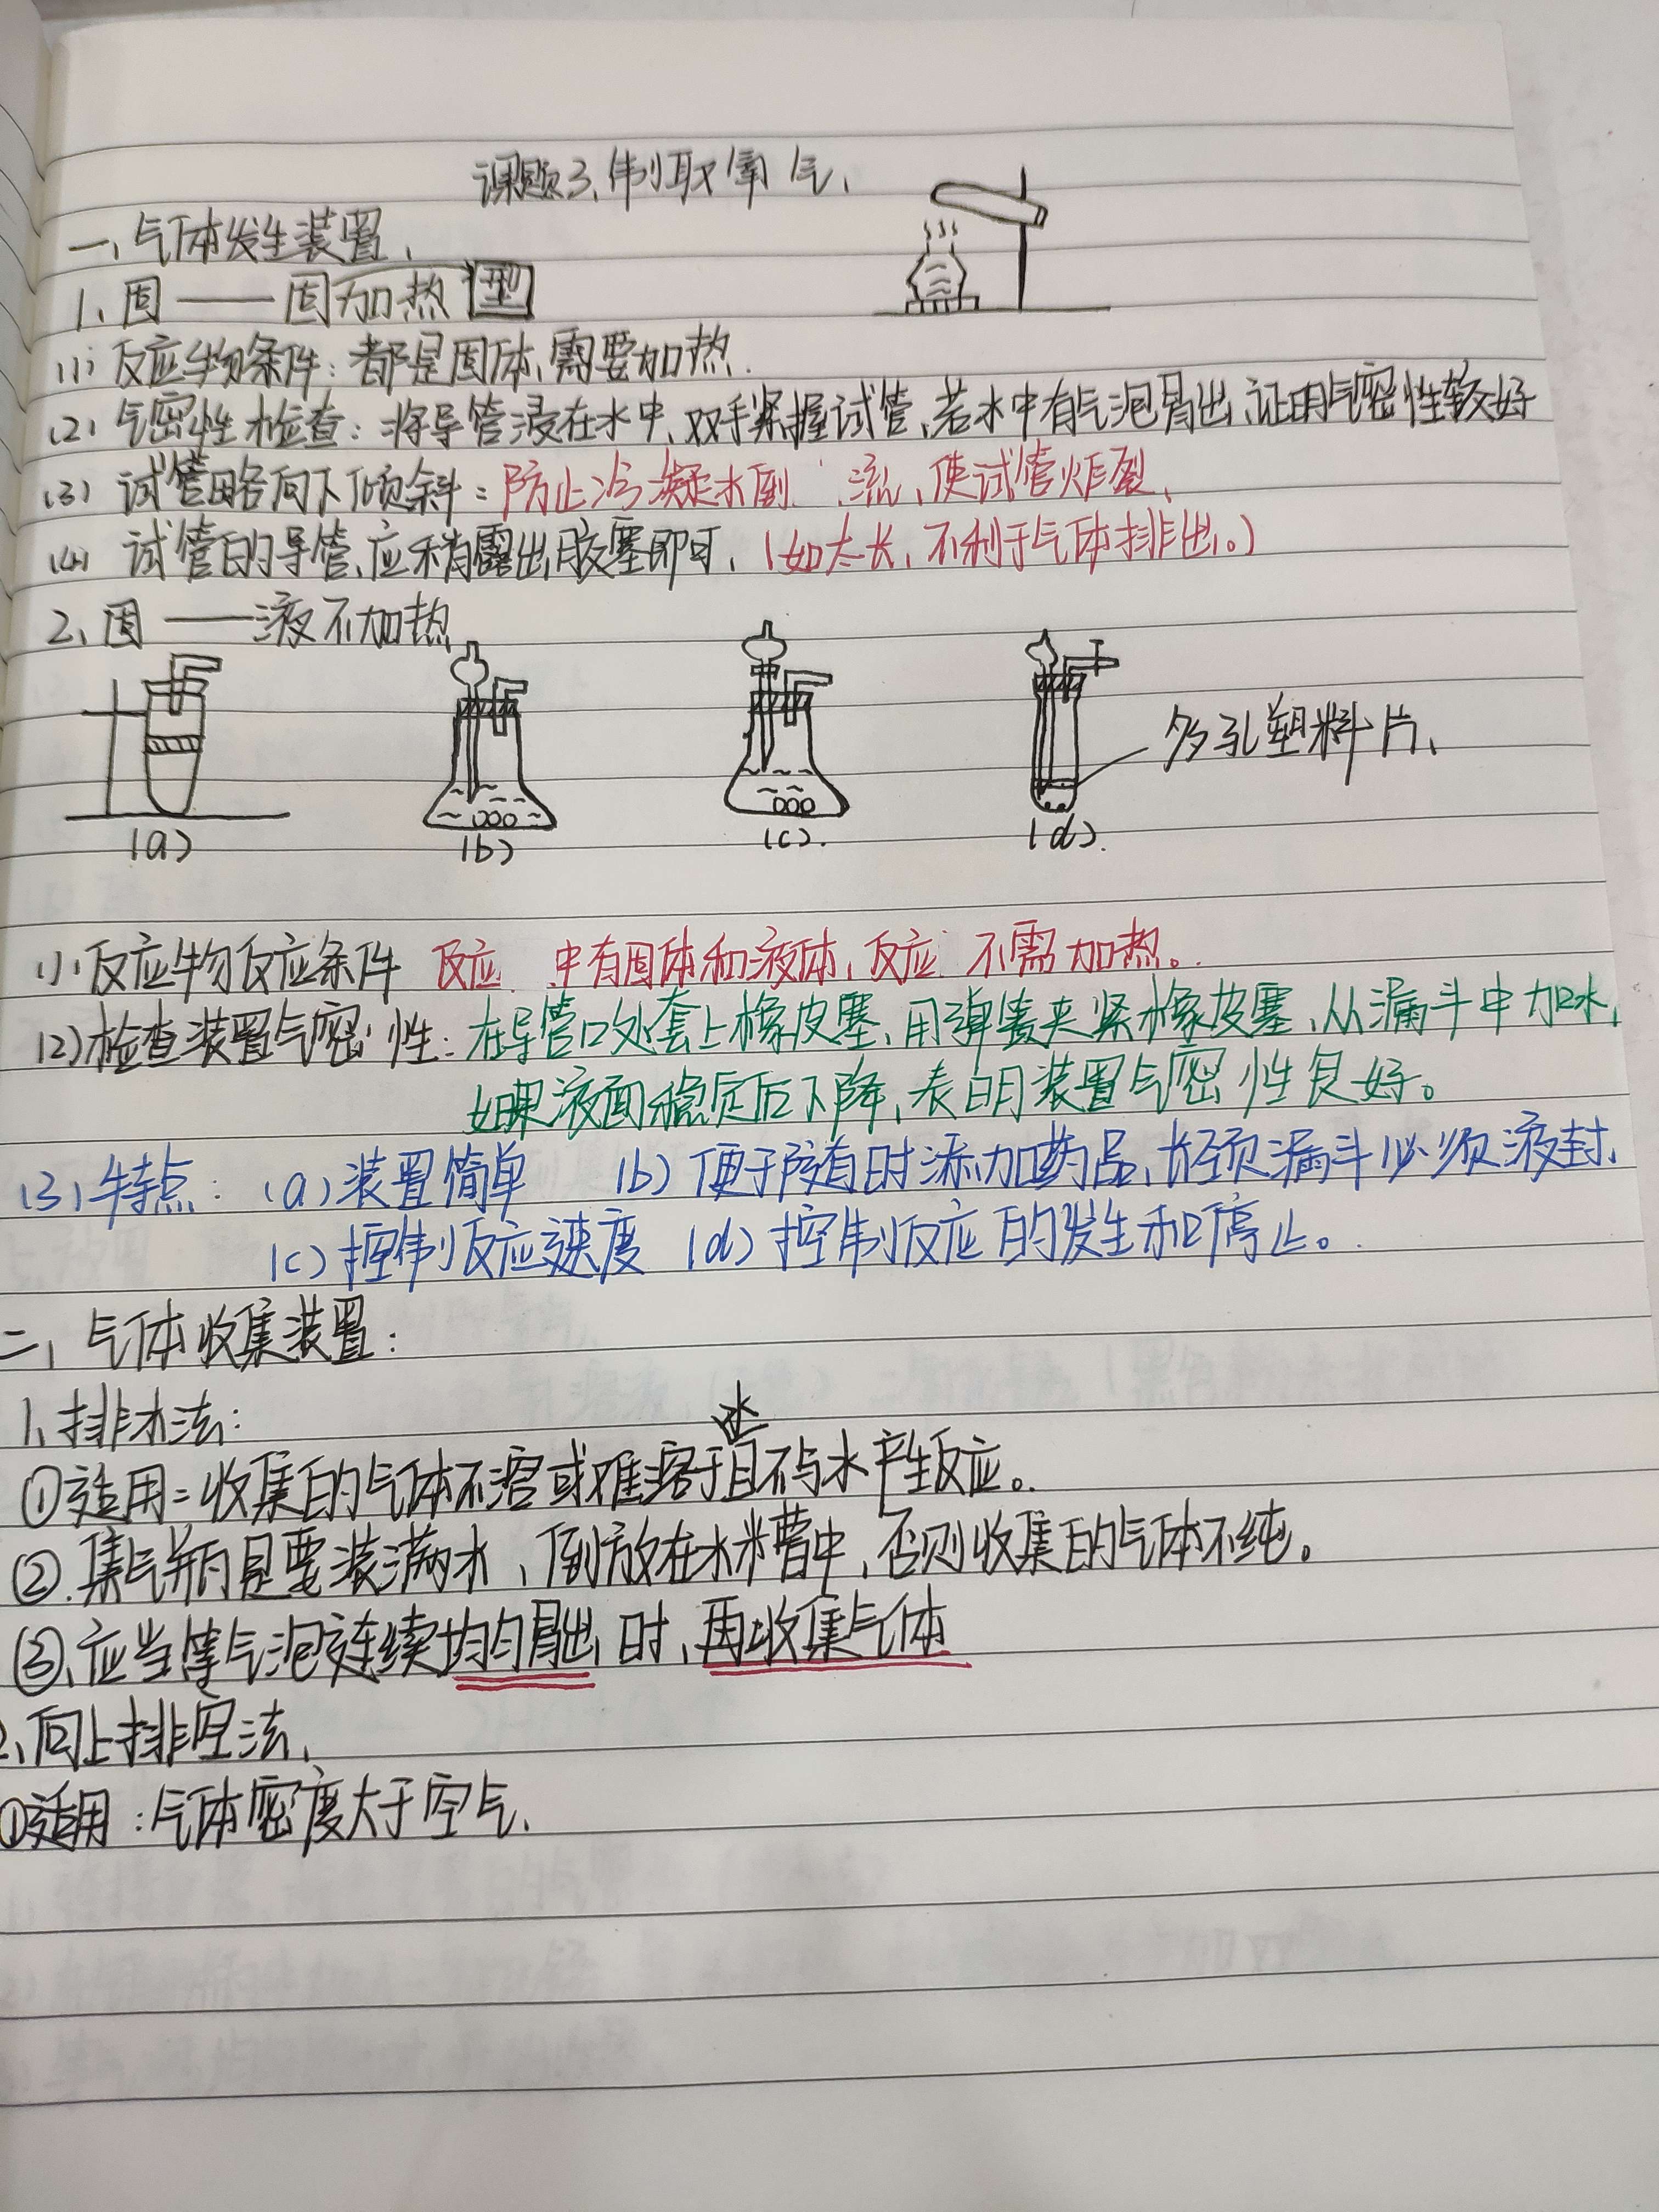 课题3、制取氧气、
一、气体发生装置、
1、固——固加热型
(1) 反应物条件:都是固体、需要加热.
(2) 气密性检查:将导管浸在水中、双手紧握试管、若水中有气泡冒出、证明气密性较好
(3) 试管略向下倾斜:防止冷凝水倒流、使试管炸裂、
(4) 试管的导管、应稍露出胶塞即可、(如太长、不利于气体排出。)
2、固——液不加热
多孔塑料片、
(a) (b) (c). (d).
(1)、反应物反应条件 反应中有固体和液体、反应不需加热。
(2)检查装置气密性:在导管口处套上橡皮塞、用弹簧夹紧橡皮塞、从漏斗中加水,
如果液面稳定后下降、表明装置气密性良好。
(3)、特点:(a)装置简单 (b)便于随时添加药品、长颈漏斗必须液封、
(c)控制反应速度 (d)控制反应的发生和停止。
二、气体收集装置:
1、排水法:
水
①适用:收集的气体不溶或难溶于且不与水产生反应。
②.集气瓶是要装满水、倒放在水槽中,否则收集的气体不纯。
③、应当等气泡连续均匀冒出时、再收集气体
2、向上排空法、
①适用:气体密度大于空气.